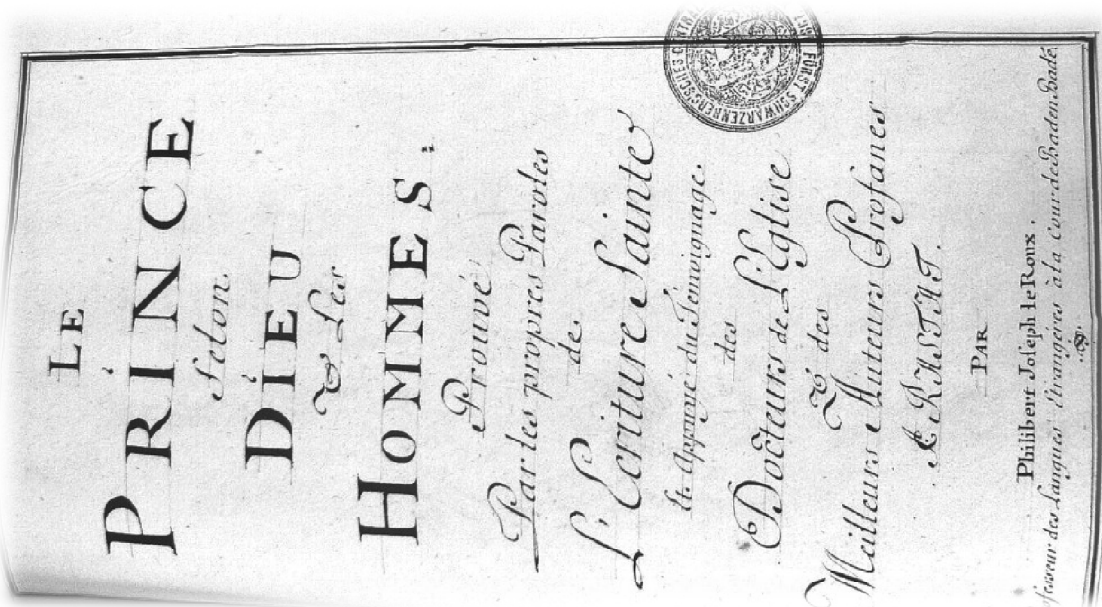 LE
PRINCE
selon
DIEU
& Les
HOMMES:
Prouvé
Par les propres Paroles
de
L'Ecriture Sainte
et Appuyé du Témoignage
des
Docteurs de L'Eglise
& des
Meilleurs Auteurs Profanes
A RASTAT.
PAR
Philibert Joseph le Roux.
fesseur des Langues étrangères à la Cour de Baden Bade.
FÜRST SCHWARZENBERGSCHES